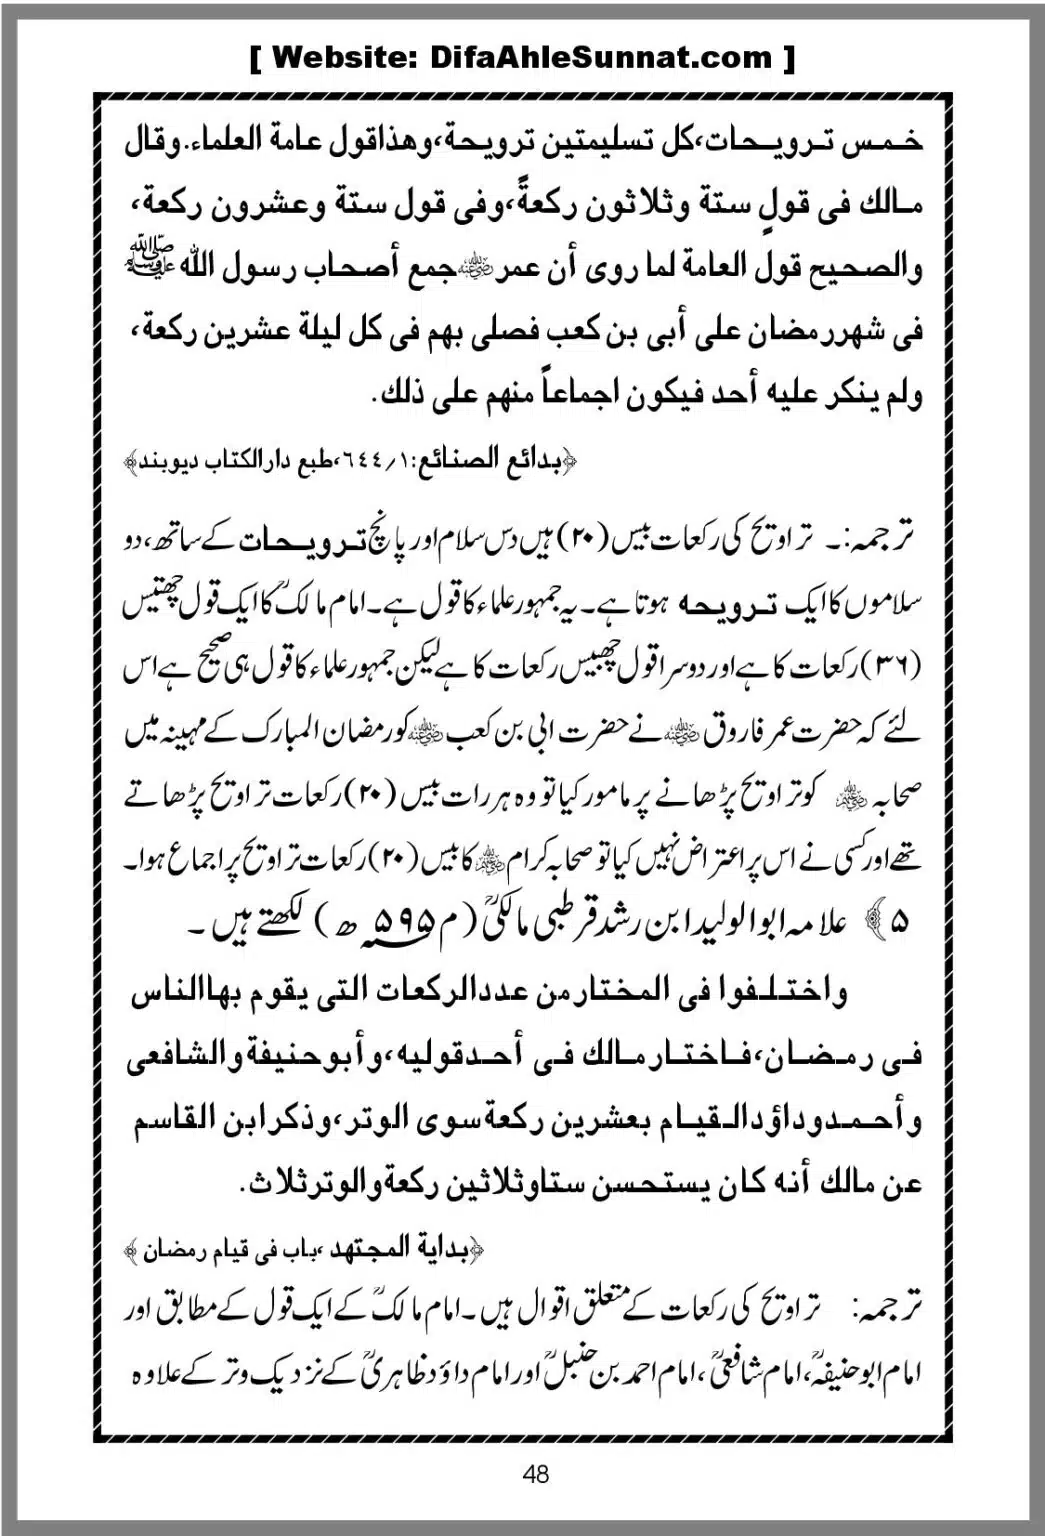 [ Website: DifaAhleSunnat.com ]
خمس ترويحات،كل تسليمتين ترويحة،وهذاقول عامة العلماء.وقال
مالك فى قولٍ ستة وثلاثون ركعةً،وفى قول ستة وعشرون ركعة،
والصحيح قول العامة لما روى أن عمر رضی اللہ عنہ جمع أصحاب رسول الله ﷺ
فى شهررمضان على أبى بن كعب فصلى بهم فى كل ليلة عشرين ركعة،
ولم ينكر عليه أحد فيكون اجماعاً منهم على ذلك.
﴿بدائع الصنائع:۱/۶۴۴،طبع دارالكتاب ديوبند﴾
ترجمہ:۔ تراویح کی رکعات بیس (۲۰) ہیں دس سلام اور پانچ ترويحات کے ساتھ، دو
سلاموں کا ایک ترويحه ہوتا ہے۔ یہ جمہور علماء کا قول ہے۔ امام مالکؒ کا ایک قول چھتیس
(۳۶) رکعات کا ہے اور دوسرا قول چھبیس رکعات کا ہے لیکن جمہور علماء کا قول ہی صحیح ہے اس
لئے کہ حضرت عمر فاروق رضی اللہ عنہ نے حضرت ابی بن کعب رضی اللہ عنہ کو رمضان المبارک کے مہینہ میں
صحابہ رضی اللہ عنہم کو تراویح پڑھانے پر مامور کیا تو وہ ہر رات بیس (۲۰) رکعات تراویح پڑھاتے
تھے اور کسی نے اس پر اعتراض نہیں کیا تو صحابہ کرام رضی اللہ عنہم کا بیس (۲۰) رکعات تراویح پر اجماع ہوا۔
۵ ﴾ علامہ ابوالولید ابن رشد قرطبی مالکیؒ (م ۵۹۵ھ) لکھتے ہیں ۔
واختلفوا فى المختارمن عددالركعات التى يقوم بهاالناس
فى رمضان،فاختارمالك فى أحدقوليه،وأبوحنيفة والشافعى
وأحمدوداؤدالقيام بعشرين ركعة سوى الوتر،وذكرابن القاسم
عن مالك أنه كان يستحسن ستاوثلاثين ركعة والوترثلاث.
﴿بداية المجتهد ،باب فى قيام رمضان ﴾
ترجمہ: تراویح کی رکعات کے متعلق اقوال ہیں۔ امام مالکؒ کے ایک قول کے مطابق اور
امام ابوحنیفہؒ، امام شافعیؒ، امام احمد بن حنبلؒ اور امام داؤد ظاہریؒ کے نزدیک وتر کے علاوہ
48